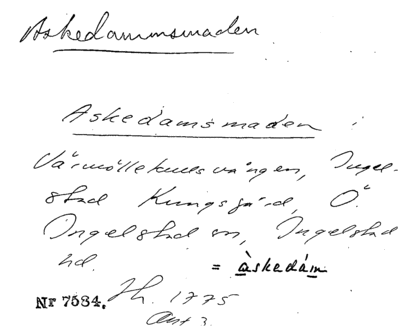 Askedammsmaden
Askedamsmaden i
Värmöllekullsvången, Ingel-
stad Kungsgård, Ö.
Ingelstad sn, Ingelstad
hd. = àskedám
Nr 7584. Lh. 1775
Akt 3.